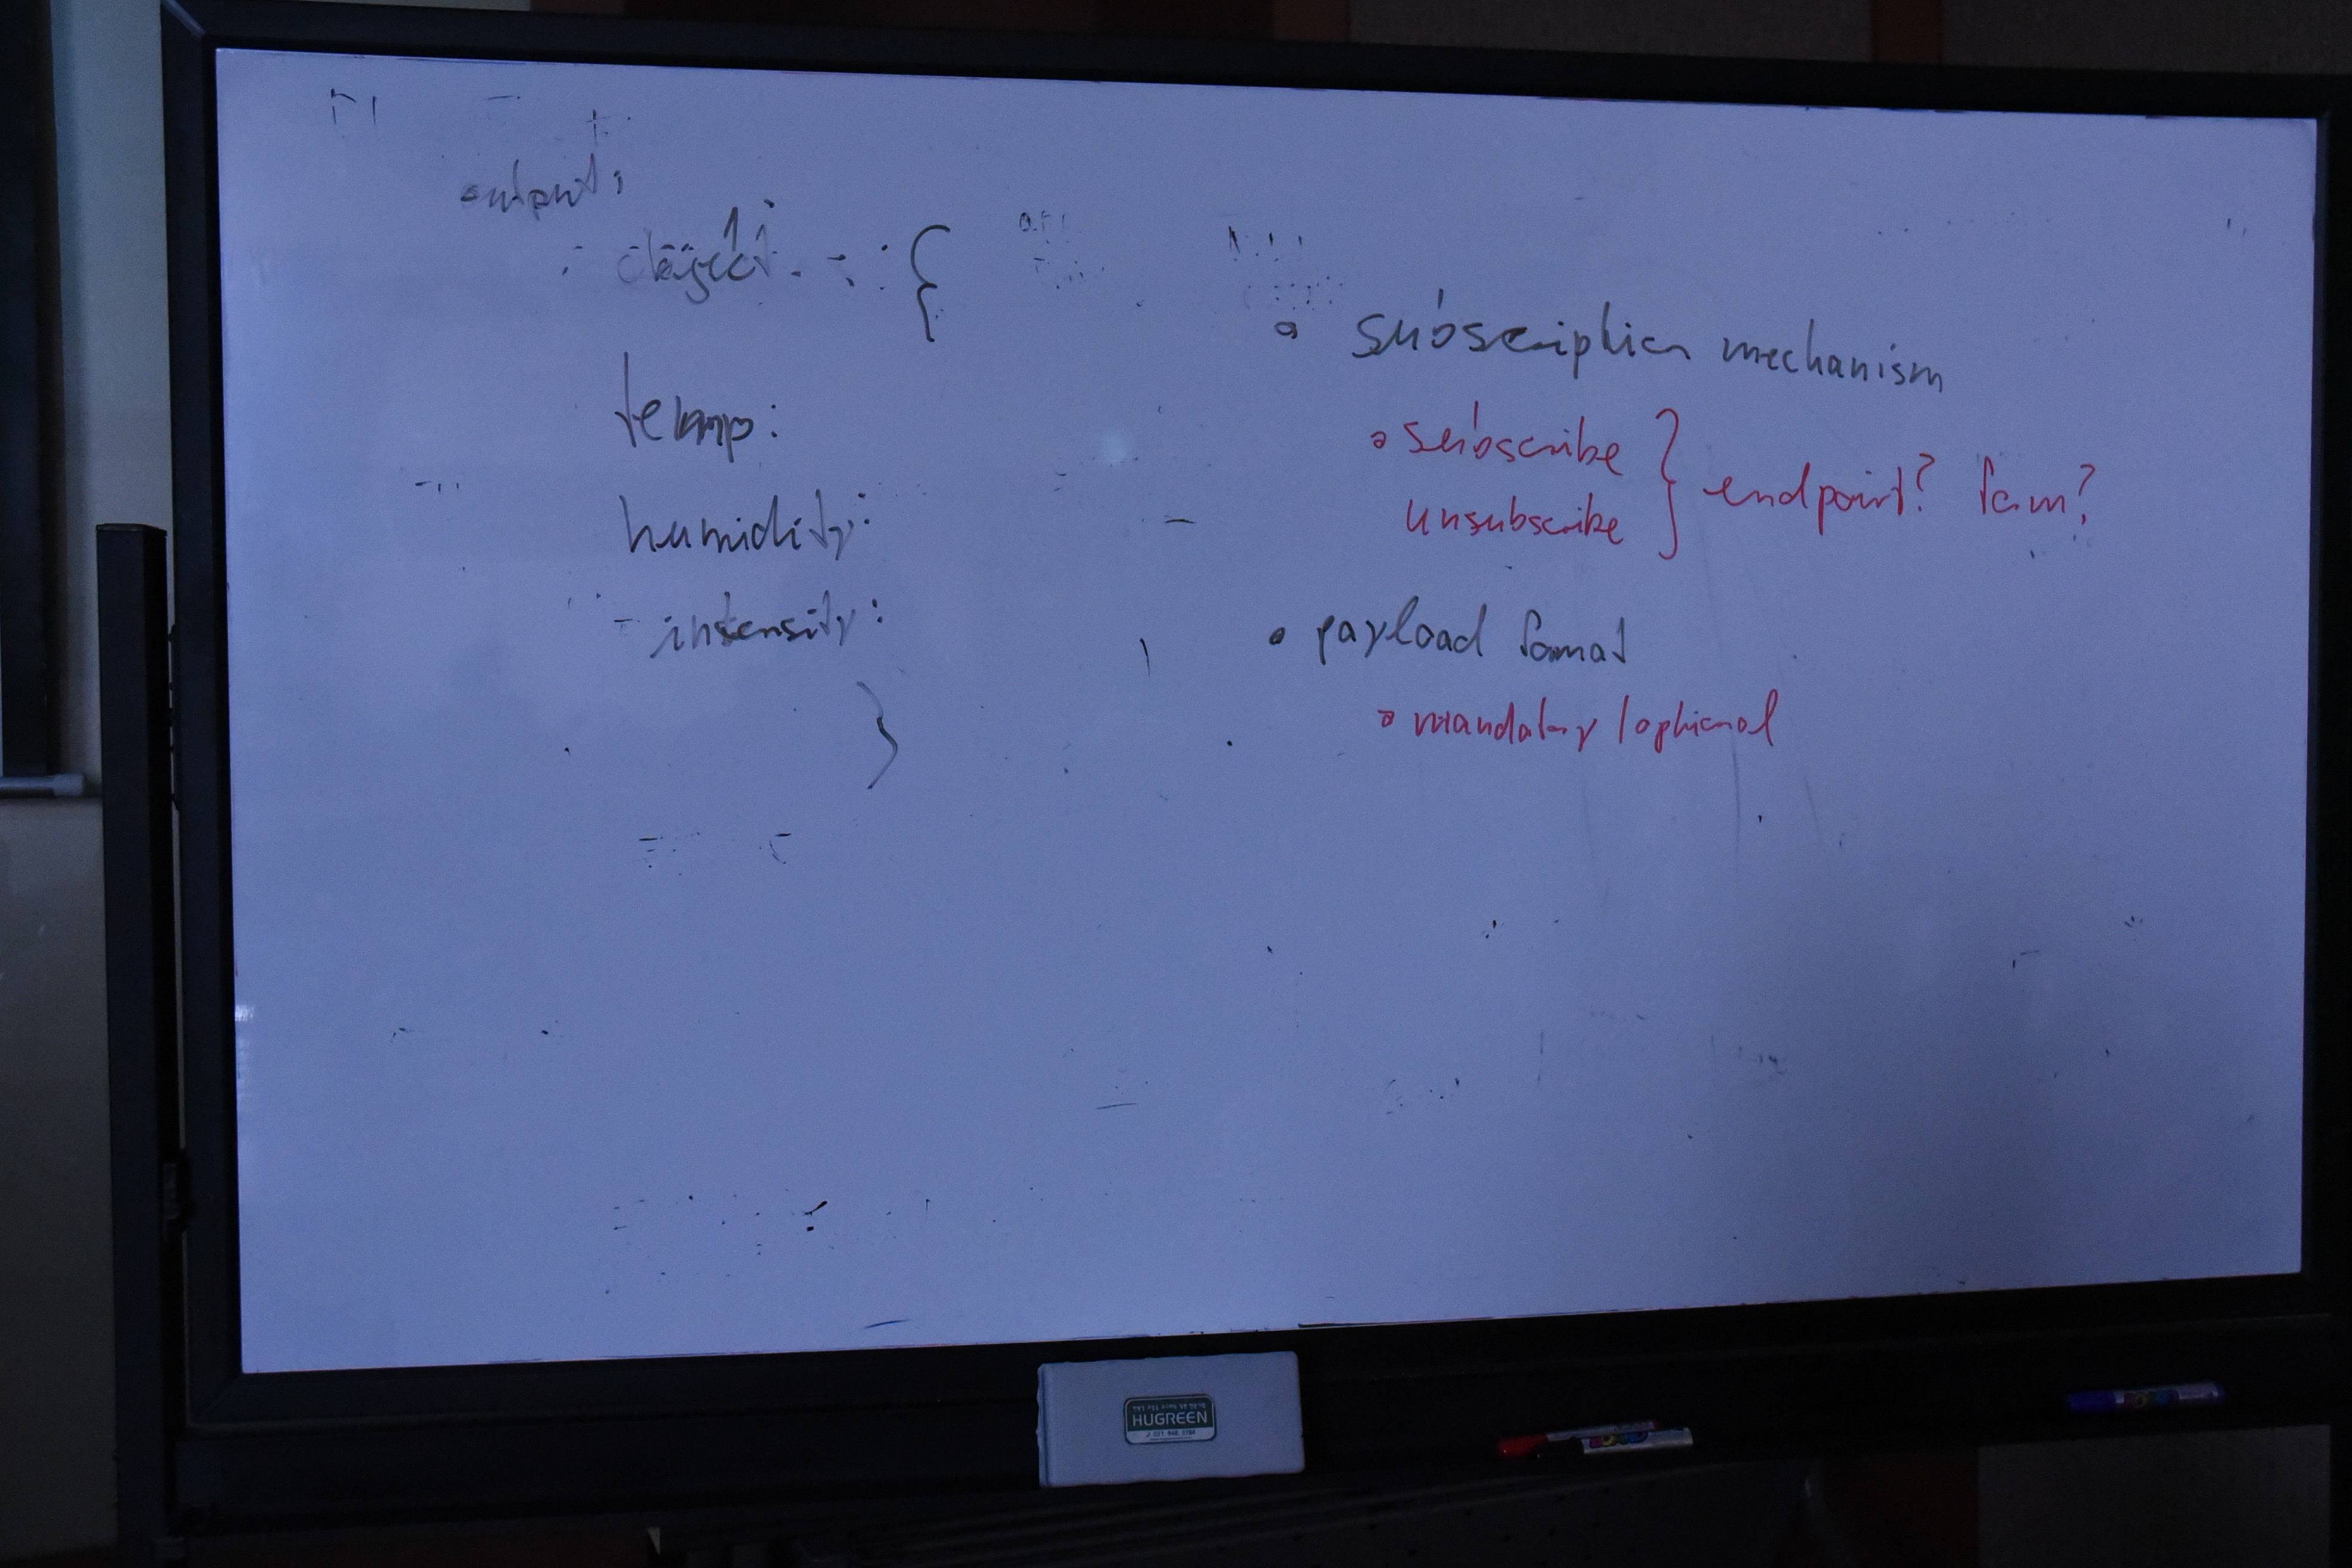 output:
object : {
temp:
humidity:
intensity:
}
• subscription mechanism
• subscribe
unsubscribe
} endpoint? form?
• payload format
• mandatory / optional
HUGREEN